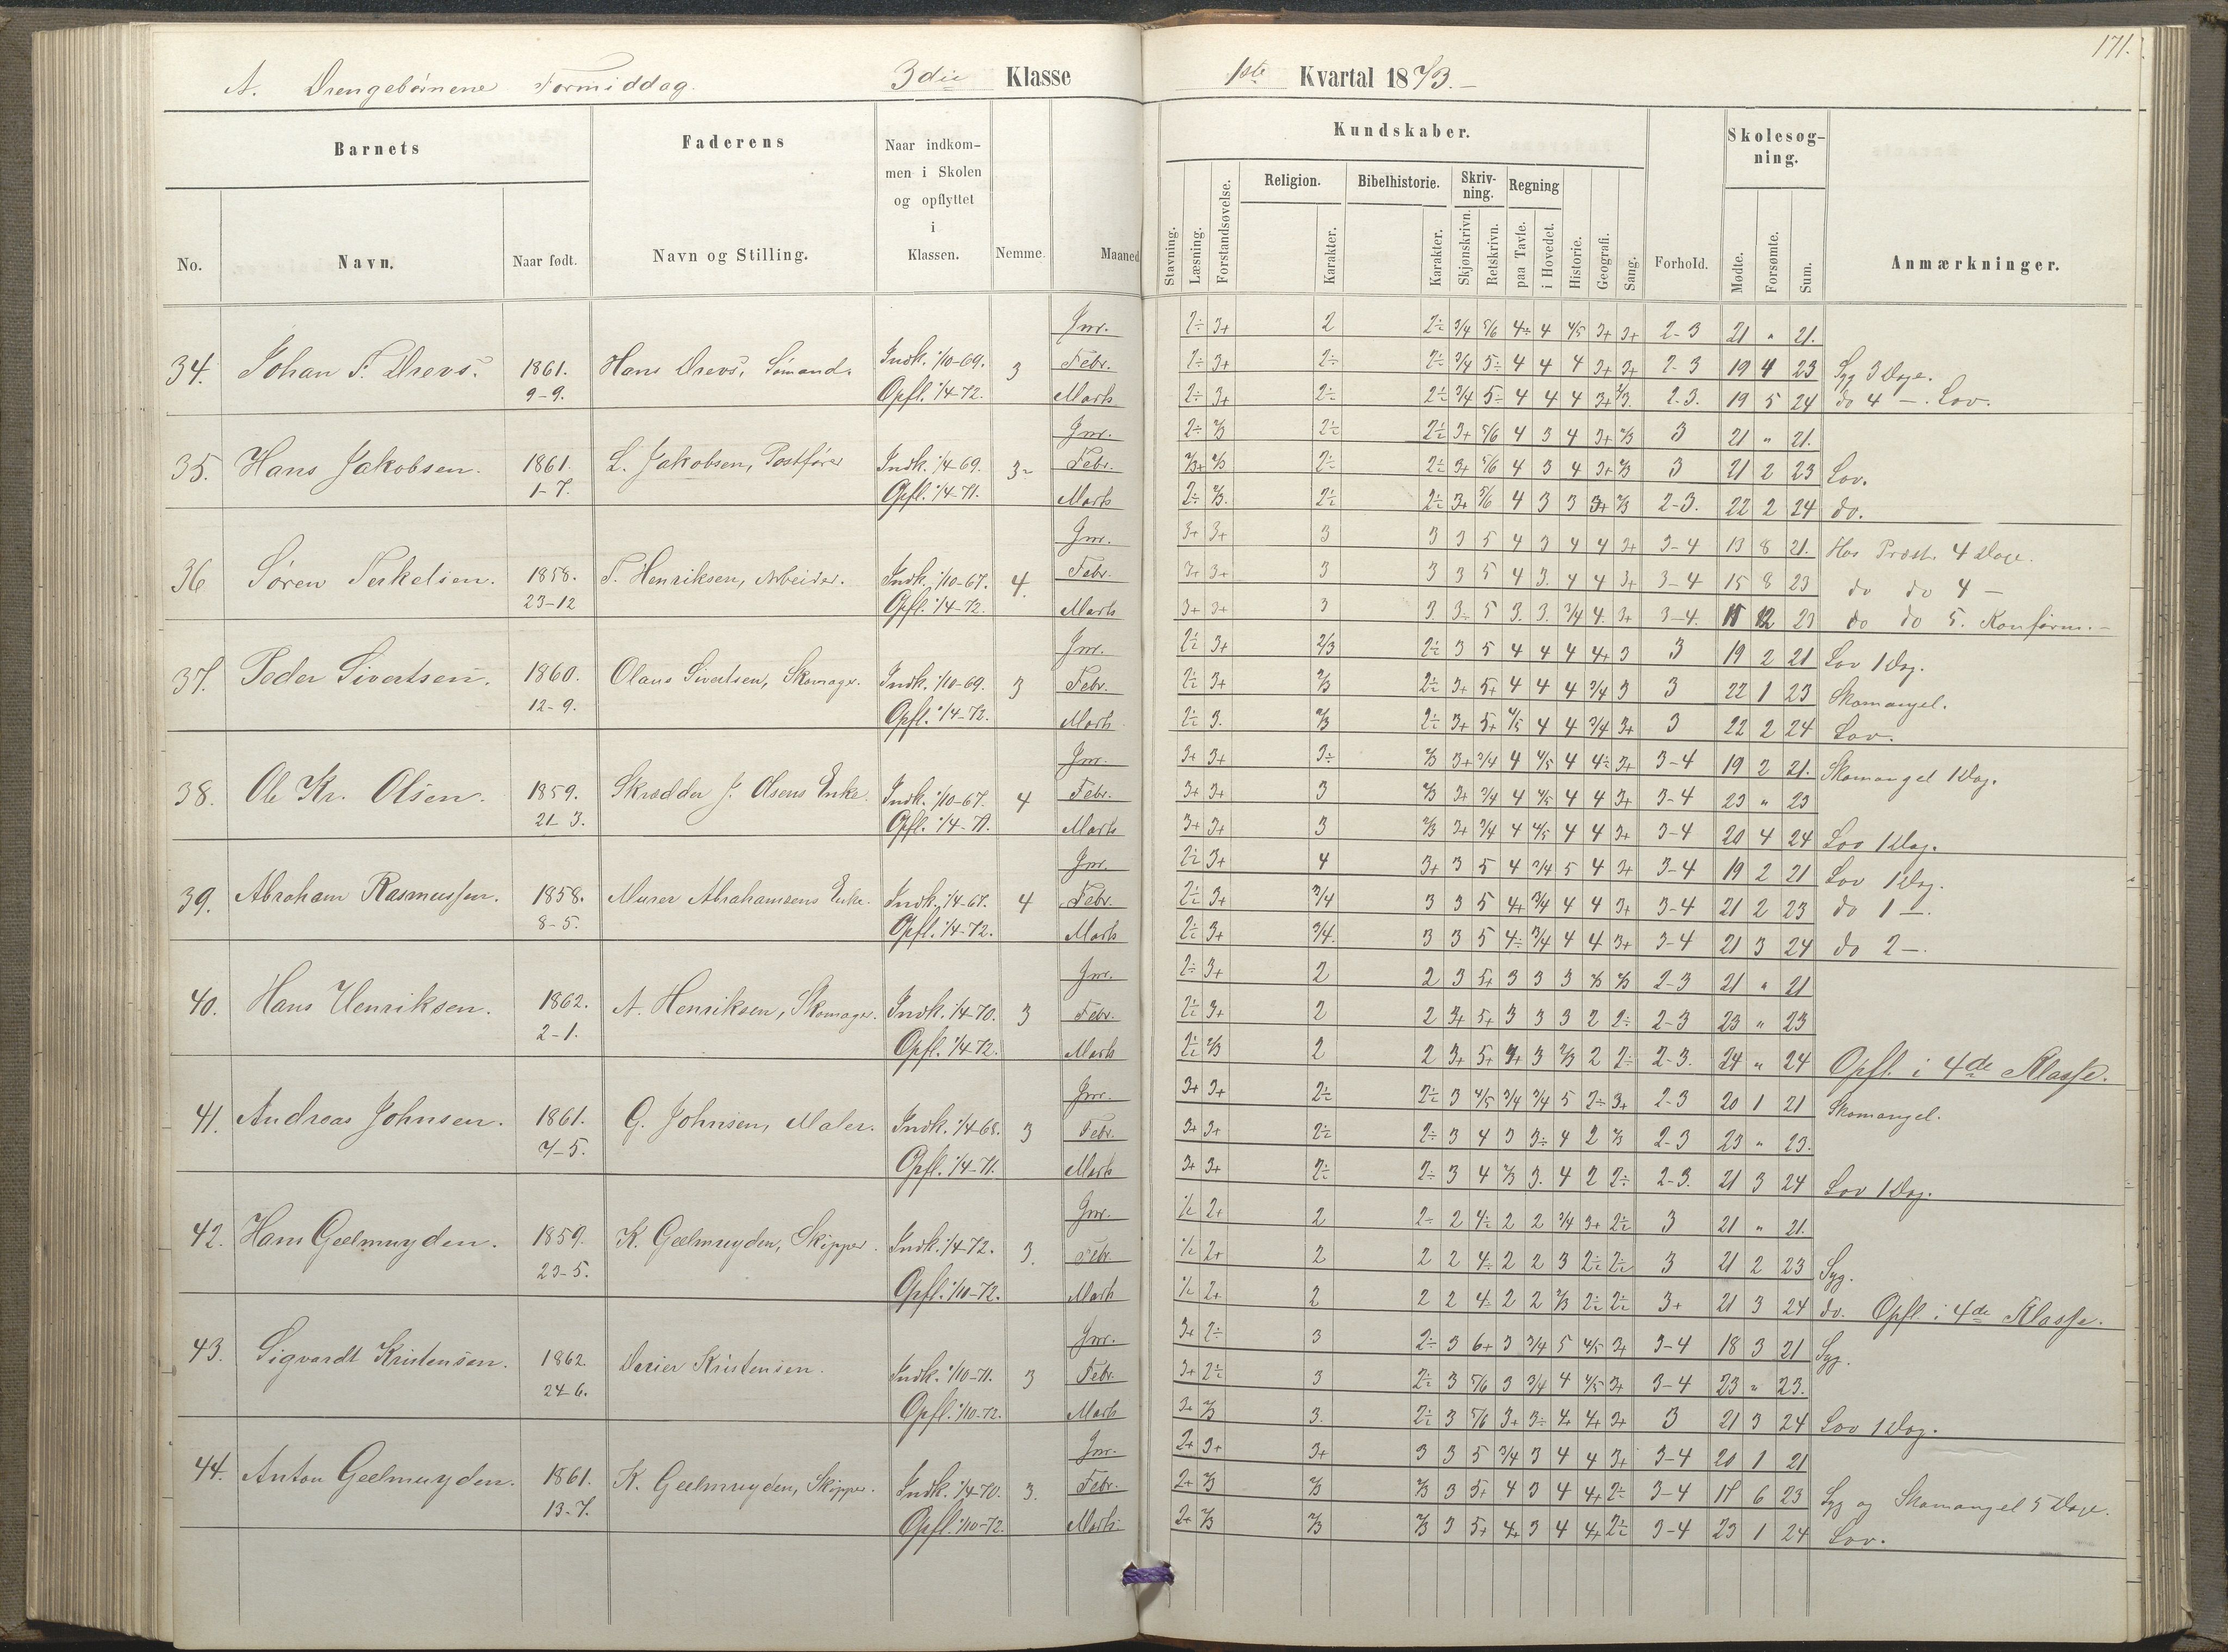 171.
A. Drengebørnene Formiddag. 3die Klasse 1ste Kvartal 1873.-
Barnets Faderens Naar indkommen i Skolen og opflyttet i Klassen. Nemme. Maaned
No. Navn. Naar født. Navn og Stilling.
Kundskaber. Skolesøgning.
Stavning. Læsning. Forstandsøvelse. Religion. Karakter. Bibelhistorie. Karakter. Skrivning. Skjønskrivn. Retskrivn. Regning paa Tavle. i Hovedet. Historie. Geografi. Sang. Forhold. Mødte. Forsømte. Sum. Anmærkninger.
Jnr. 2÷ 3+ 2 2÷ 3/4 5/6 4÷ 4 4/5 3+ 3+ 2-3 21 " 21.
34. Johan F. Drevs. 1861. 9-9. Hans Drevs, Sømand. Indk. 1/10-69. Opfl. 1/4-72. 3 Febr. 2÷ 3+ 2÷ 2÷ 3/4 5÷ 4 4 4 3+ 3+ 2-3 19 4 23 Syg 3 Dage.
Marts 2÷ 3+ 2÷ 2÷ 3/4 5÷ 4 4 4 3+ 2/3. 2-3. 19 5 24 do 4 —. Lov.
Jnr. 2÷ 2/3 2÷ 2÷ 3+ 5/6 4 3 4 3+ 2/3 3 21 " 21.
35. Hans Jakobsen. 1861. 1-7. L. Jakobsen, Postfører Indk. 1/4-69. Opfl. 1/4-71. 3÷ Febr. 2/3+ 2/3 2÷ 2÷ 3+ 5/6 4 3 4 3+ 2/3 3 21 2 23 Lov.
Marts 2÷ 2/3. 2÷ 2÷ 3+ 5/6 4 3 3 3+ 2/3 2-3. 22 2 24 do.
Jnr. 3+ 3+ 3 3 3 5 4 3 4 4 3+ 3-4 13 8 21. Hos Præst. 4 Dage.
36 Søren Terkelsen. 1858. 23-12 T. Henriksen, Arbeider. Indk. 1/10-67. Opfl. 1/4-72. 4. Febr. 3+ 3+ 3 3 3 5 4 3. 4 4 3+ 3-4 15 8 23 do do 4 —
Marts 3+ 3+ 3 3. 3÷ 5 3. 3. 3/4 4. 3+ 3-4. 11 12 23 do do 5. Konfirm.-
Jnr. 2÷ 3+ 2/3 2÷ 3 5 4 4 4 4+ 3 3 19 2 21 Lov 1 Dag.
37. Peder Sivertsen. 1860. 12-9. Olaus Sivertsen, Skomager. Indk. 1/10-69. Opfl. 1/4-72. 3 Febr. 2÷ 3+ 2/3 2÷ 3+ 5+ 4 4 4 3/4 3 3 22 1 23 Skomangel.
Marts 2÷ 3. 2/3 2÷ 3+ 5+ 4/5 4 4 3/4 3+ 3 22 2 24 Lov.
Jnr. 3+ 3+ 3÷ 2/3 3+ 3/4 4 4/5 4 4÷ 3+ 3-4 19 2 21. Skomangel 1 Dag.
38. Ole Kr. Olsen. 1859. 21-3. Skrædder J. Olsens Enke. Indk. 1/10-67. Opfl. 1/4-71. 4 Febr. 3+ 3+ 3 2/3 3+ 3/4 4 4/5 4 4 3+ 3-4 23 " 23
Marts 3+ 3+ 3 2/3 3+ 3/4 4 4/5 4 4 3+ 3-4 20 4 24 Lov 1 Dag.
Jnr. 2÷ 3+ 4 3+ 3 5 4 3/4 5 4 3+ 3-4 19 2 21 Lov 1 Dag.
39. Abraham Rasmussen. 1858. 8-5. Murer Abrahamsens Enke. Indk. 1/4-67. Opfl. 1/4-72. 4 Febr. 2÷ 3+ 3/4 3 3 5 4+ 3/4 4 4 3+ 3-4 21 2 23 do 1 —.
Marts 2÷ 3+ 3/4. 3 3 5 4÷ 3/4 4 4 3+ 3-4 21 3 24 do 2 —.
Jnr. 2÷ 3+ 2 2 3 5+ 3 3 3 2/3 2/3 2-3 21 " 21
40. Hans Henriksen. 1862. 2-1. A. Henriksen, Skomager. Indk. 1/4-70. Opfl. 1/4-72. 3 Febr. 2÷ 3+ 2 2 3+ 5+ 3 3 3 2 2÷ 2-3 23 " 23
Marts 2÷ 2/3 2 2 3+ 5+ 3+ 3 2/3 2 2÷ 2-3. 24 " 24 Opfl. i 4de Klasse.
Jnr. 3+ 3+ 2÷ 2÷ 3 4/5 3/4 3/4 5 2÷ 3+ 2-3 20 1 21 Skomangel.
41. Andreas Johnsen. 1861. 7-5. G. Johnsen, Maler. Indk. 1/4-68. Opfl. 1/4-71. 3 Febr. 3+ 3+ 2÷ 2÷ 3 4 3 3÷ 4 2 2/3 2-3 23 " 23.
Marts 3+ 3+ 2÷ 2÷ 3 4 2/3 3. 4 2 2÷ 2-3. 21 3 24 Lov 1 Dag.
Jnr. 1/2 2+ 2 2÷ 2 4÷ 2 2 3/4 3+ 2÷ 3 21 " 21.
42. Hans Geelmuyden. 1859. 23-5. K. Geelmuyden, Skipper. Indk. 1/4-72. Opfl. 1/10-72. 3. Febr 1/2 2+ 2 2 2 4÷ 2 2 3 2÷ 2÷ 3 21 2 23 Syg.
Marts 1/2 2+ 2 2 2 4÷ 2 2 2/3 2÷ 2÷ 3+ 21 3 24 do. Opfl. i 4de Klasse.
Jnr. 3+ 2÷ 3 2÷ 3 6+ 3 3/4 5 4/5 3+ 3-4 18 3 21 Syg.
43. Sigvardt Kristensen. 1862. 24-6. Kristensen. Indk. 1/10-71. Opfl. 1/10-72. 3 Febr. 3+ 2÷ 3 2÷ 3 5/6 3 3/4 4 4/5 3+ 3-4 23 " 23.
Marts 3+ 2/3 3. 2÷ 3 5/6 3+ 3÷ 4 4+ 3+ 3 21 3 24 Lov 1 Dag.
Jnr. 2+ 3+ 3+ 3 3 5 3/4 3 4 4 3+ 3-4 20 1 21
44. Anton Geelmuyden. 1861. 13-7. K. Geelmuyden, Skipper. Indk. 1/4-70. Opfl. 1/10-72. 3. Febr. 2+ 2/3 2/3 2/3 3 5+ 4 3 4 4+ 2÷ 3-4 17 6 23 Syg og Skomangel 5 Dage.
Marts 2+ 2/3 2/3 2/3 3 5+ 4+ 3 4 4+ 2÷ 3-4 23 1 24 Lov.